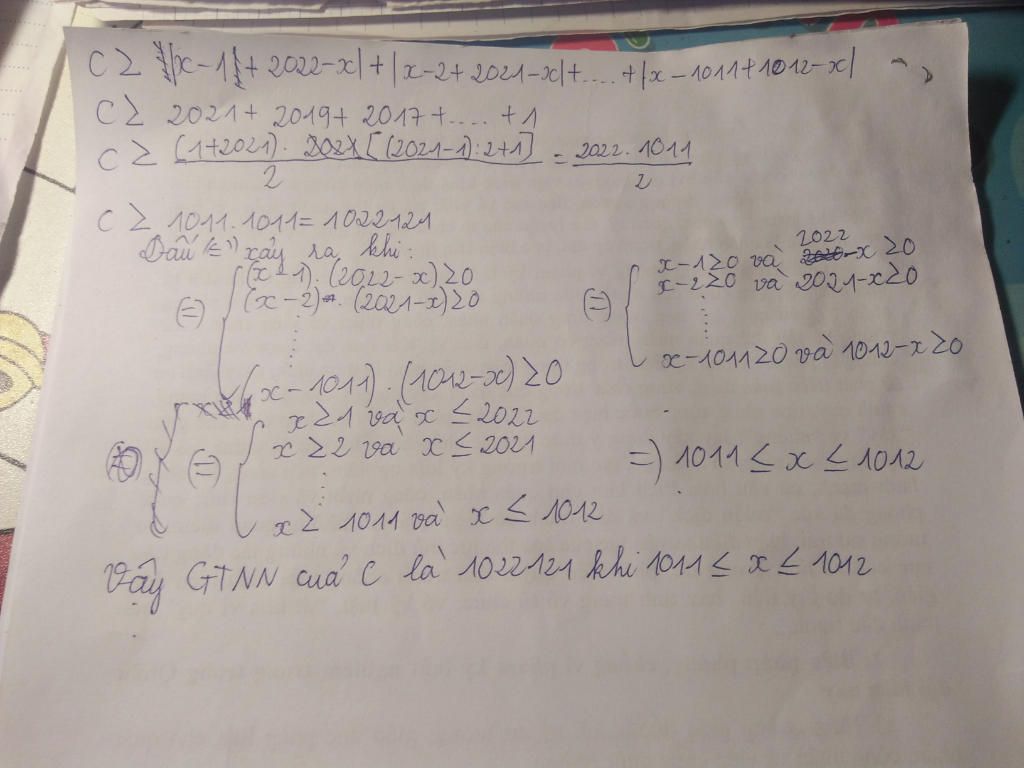 C ≥ |x-1+2022-x|+|x-2+2021-x|+....+|x-1011+1012-x|
C ≥ 2021+2019+2017+....+1
C ≥ (1+2021).[(2021-1):2+1] / 2 = 2022.1011 / 2
C ≥ 1011.1011=1022121
Dấu "=" xảy ra khi:
(=) { (x-1).(2022-x)≥0 (=) { x-1≥0 và 2022-x≥0
(x-2).(2021-x)≥0 x-2≥0 và 2021-x≥0
(x-1011).(1012-x)≥0 x-1011≥0 và 1012-x≥0
(=) { x≥1 và x≤2022
x≥2 và x≤2021 =) 1011≤x≤1012
x≥1011 và x≤1012
Vậy GTNN của C là 1022121 khi 1011≤x≤1012